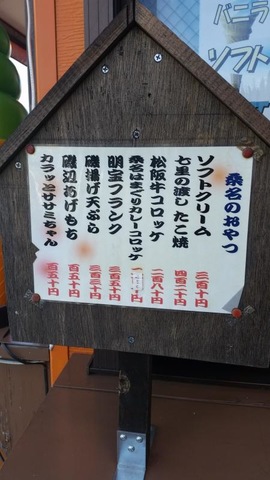 バニラ
ソフト
桑名のおやつ
ソフトクリーム 三百十円
七里の渡し たこ焼 四百二十円
松阪牛コロッケ 二百八十円
桑名はまぐりカレーコロッケ 円
明宝フランク 三百五十円
磯揚げ天ぷら 三百三十円
磯辺あげもち 百五十円
カラッとササミちゃん 百五十円